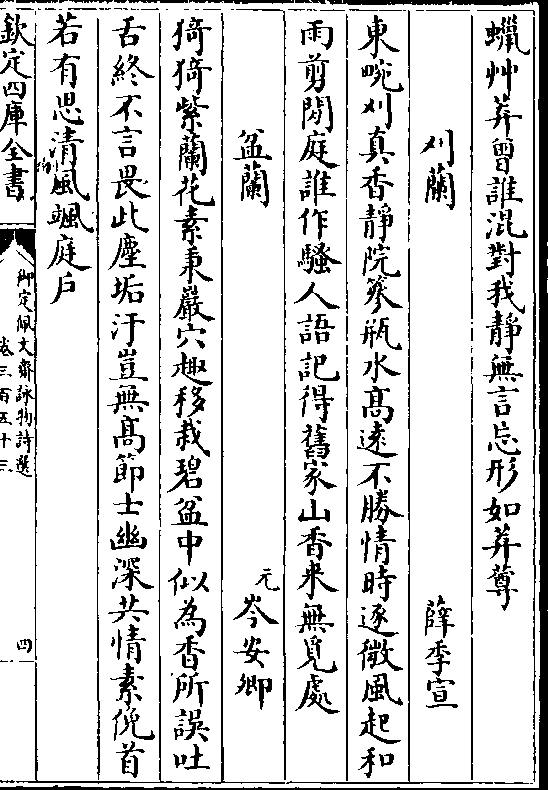 蠟艸莽曾誰混對我靜無言忘形如莽尊
刈蘭 薛季宣
東畹刈真香靜院簃瓶水髙遠不勝情時逐微風起和
雨剪閒庭誰作騷人語記得舊家山香来無覓處
盆蘭 元 岑安卿
猗猗紫蘭花素秉巖穴趣移栽碧盆中似為香所誤吐
舌終不言畏此塵垢汙豈無髙節士幽深共情素俛首
若有思清風颯庭戶
欽定四庫全書
御定佩文齋詠物詩選
卷三百五十三
四